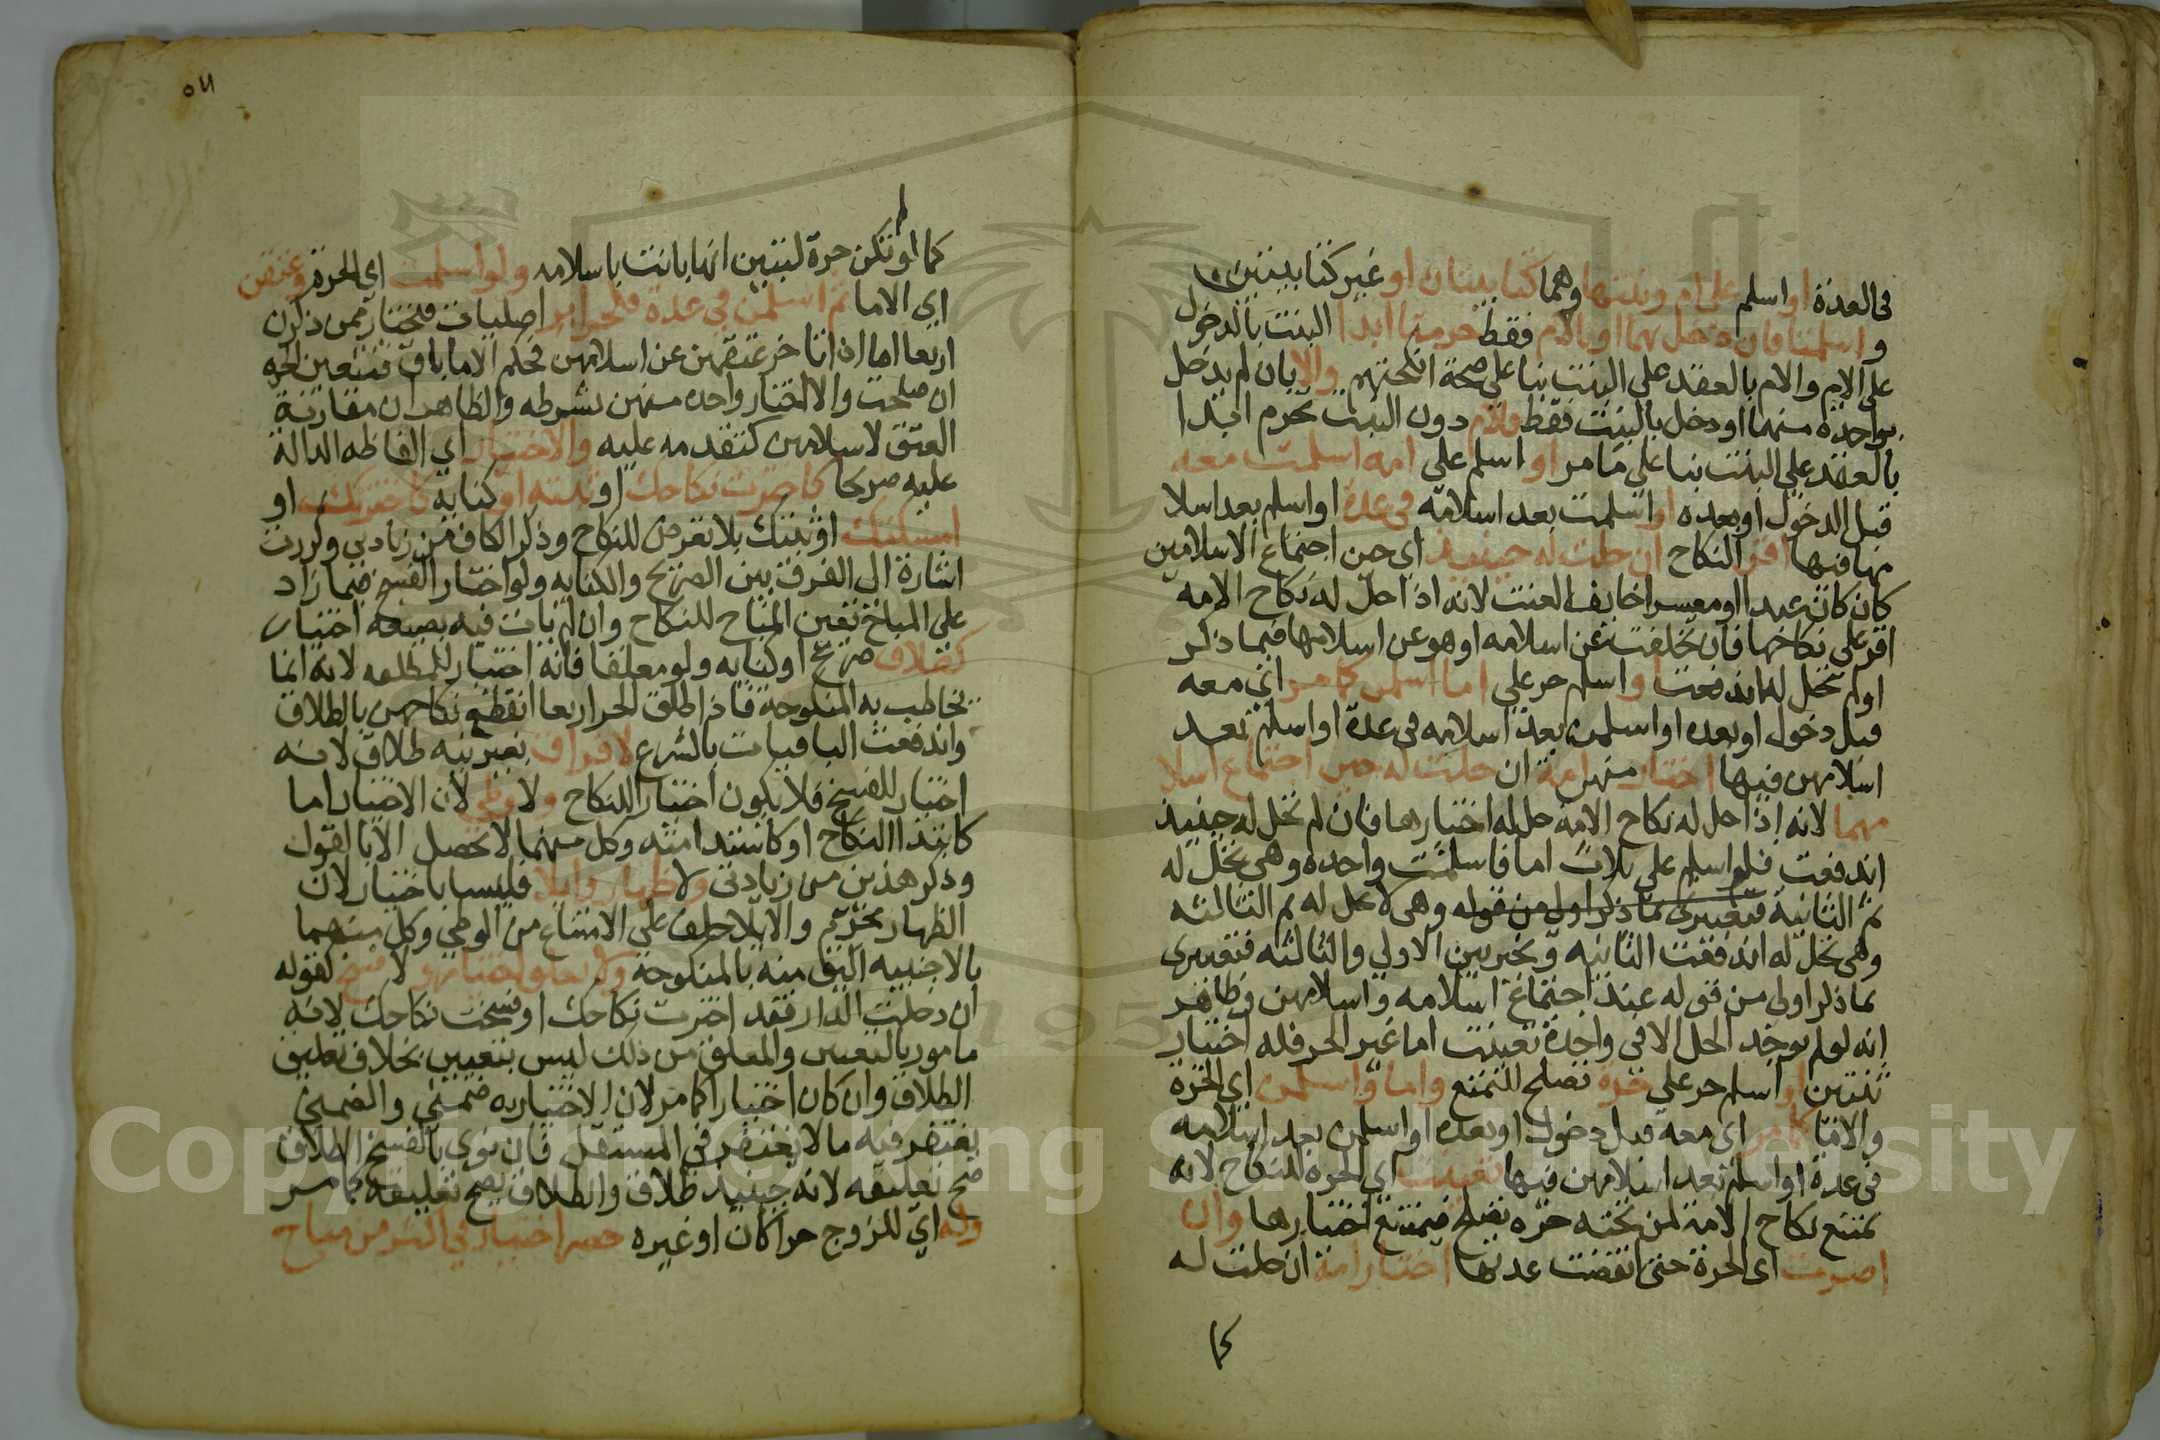 في العدة او اسلم على ام وبنتها وهما كتابيتان او غير كتابيتين
و اسلمتا فان دخل بهما او بالام فقط حرمتا ابدا البنت بالدخول
على الام والام بالعقد على البنت بنا على صحة انكحتهم والا بان لم يدخل
بواحدة منهما او دخل بالبنت فقط فالام دون البنت تحرم ابدا
بالعقد على البنت بنا على ما مر او اسلم على امة اسلمت معه
قبل الدخول او بعده او اسلمت بعد اسلامه في عدة او اسلم بعد اسلا
مها فيها اقر النكاح ان حلت له حينيذ اي حين اجتماع الاسلامين
كان كان عبدا او معسرا خايف العنت لانه اذا حل له نكاح الامة
اقر على نكاحها فان تخلفت عن اسلامه او هو عن اسلامها فيما ذكر
او لم تحل له اندفعت او اسلم حر على اما اسلمن كما مر اي معه
قبل دخول او بعده او اسلمن بعد اسلامه في عدة او اسلم بعد
اسلامهن فيها اختار منهن امة ان حلت له حين اجتماع اسلا
مهما لانه اذا حل له نكاح الامة حل له اختيارها فان لم تحل له حينيذ
اندفعت فلو اسلم على ثلاث اما فاسلمت واحدة وهي تحل له
ثم الثانية فتعبيري بما ذكر اولى من قوله وهي لا تحل له ثم الثالثة
وهي تحل له اندفعت الثانيه وتخير بين الاولى والثالثه فتعبيري
بما ذكر اولى من قوله عند اجتماع اسلامه واسلامهن وظاهر
انه لو لم يوجد الحل الا في واحدة تعينت اما غير الحر فله اختيار
ثنتين او اسلم حر على حرة تصلح للتمتع واما واسلمن اي الحرة
والاما كما مر اي معه قبل دخول او بعده او اسلمن بعد اسلامه
في عدة او اسلم بعد اسلامهن فيها تعينت اي الحرة للنكاح لانه
يمتنع نكاح الامة لمن تحته حرة تصلح فيمتنع اختيارها وان
اصرت اي الحرة حتى انقضت عدتها اختار امة ان حلت له
كما
٥٦
لم
كما لو تكن حرة لتبين انها بانت باسلامه ولو اسلمت اي الحرة وعتقن
اي الاما ثم اسلمن في عدة فكحراير اصليات فيختار ممن ذكرن
اربعا اما اذا تاخر عتقهن عن اسلامهن فحكم الاما باق فتتعين الحرة
ان صلحت والا اختار واحدة منهن بشرطه والظاهر ان مقارنة
العتق لاسلامهن كتقدمه عليه والاختيار اي الفاظه الدالة
عليه صريحا كاخترت نكاحك او ثبته او كناية كاخترتك او
امسكتك او ثبتك بلا تعرض للنكاح وذكر الكاف من زيادتي وكررت
اشارة الى الفرق بين الصريح والكنايه ولو اختار الفسخ فيما زاد
على المباح تعين المباح للنكاح وان لم يات فيه بصيغة اختيار
كطلاق صريح او كنايه ولو معلقا فانه اختيار للمطلقه لانه انما
يخاطب به المنكوحة فاذا طلق الحر اربعا انقطع نكاحهن بالطلاق
واندفعت الباقيات بالشرع لا فراق بغير نية طلاق لانه
اختيار للفسخ فلا يكون اختيار اللنكاح ولا وطي لان الاختيار اما
كابتدا النكاح او كاستدامته وكل منهما لا يحصل الا بالقول
وذكر هذين من زيادتي ولا ظهار وايلا فليسا باختيار لان
الظهار تحريم والايلا حلف على الامتناع من الوطي وكل منهما
بالاجنبيه اليق منه بالمنكوحة ولا يعلق اختيار ولا فسخ كقوله
ان دخلت الدار فقد اخترت نكاحك او فسخت نكاحك لانه
مامور بالتعيين والمعلق من ذلك ليس بتعيين بخلاف تعليق
الطلاق وان كان اختيارا كما مر لان الاختيار به ضمني والضمني
يغتفر فيه ما لا يغتفر في المستقل فان نوى بالفسخ الطلاق
صح تعليقه لانه حينيذ طلاق والطلاق يصح تعليقه كما مر
وله اي للزوج حرا كان او غيره حصر اختيار في اكثر من مباح